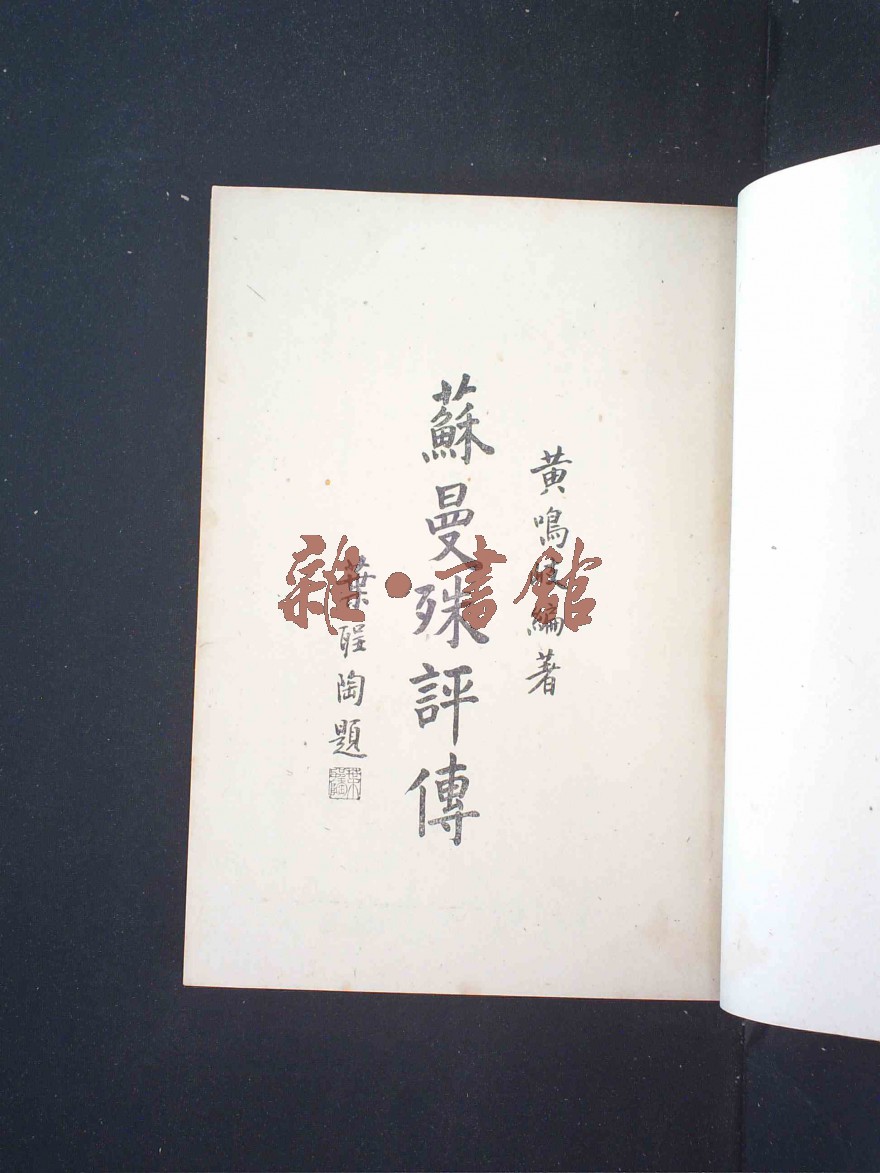 黄鳴岐編著
蘇曼殊評傳
葉聖陶題
雜·書館